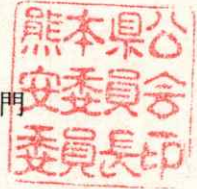 門
熊本県公
安委員会
委員長印